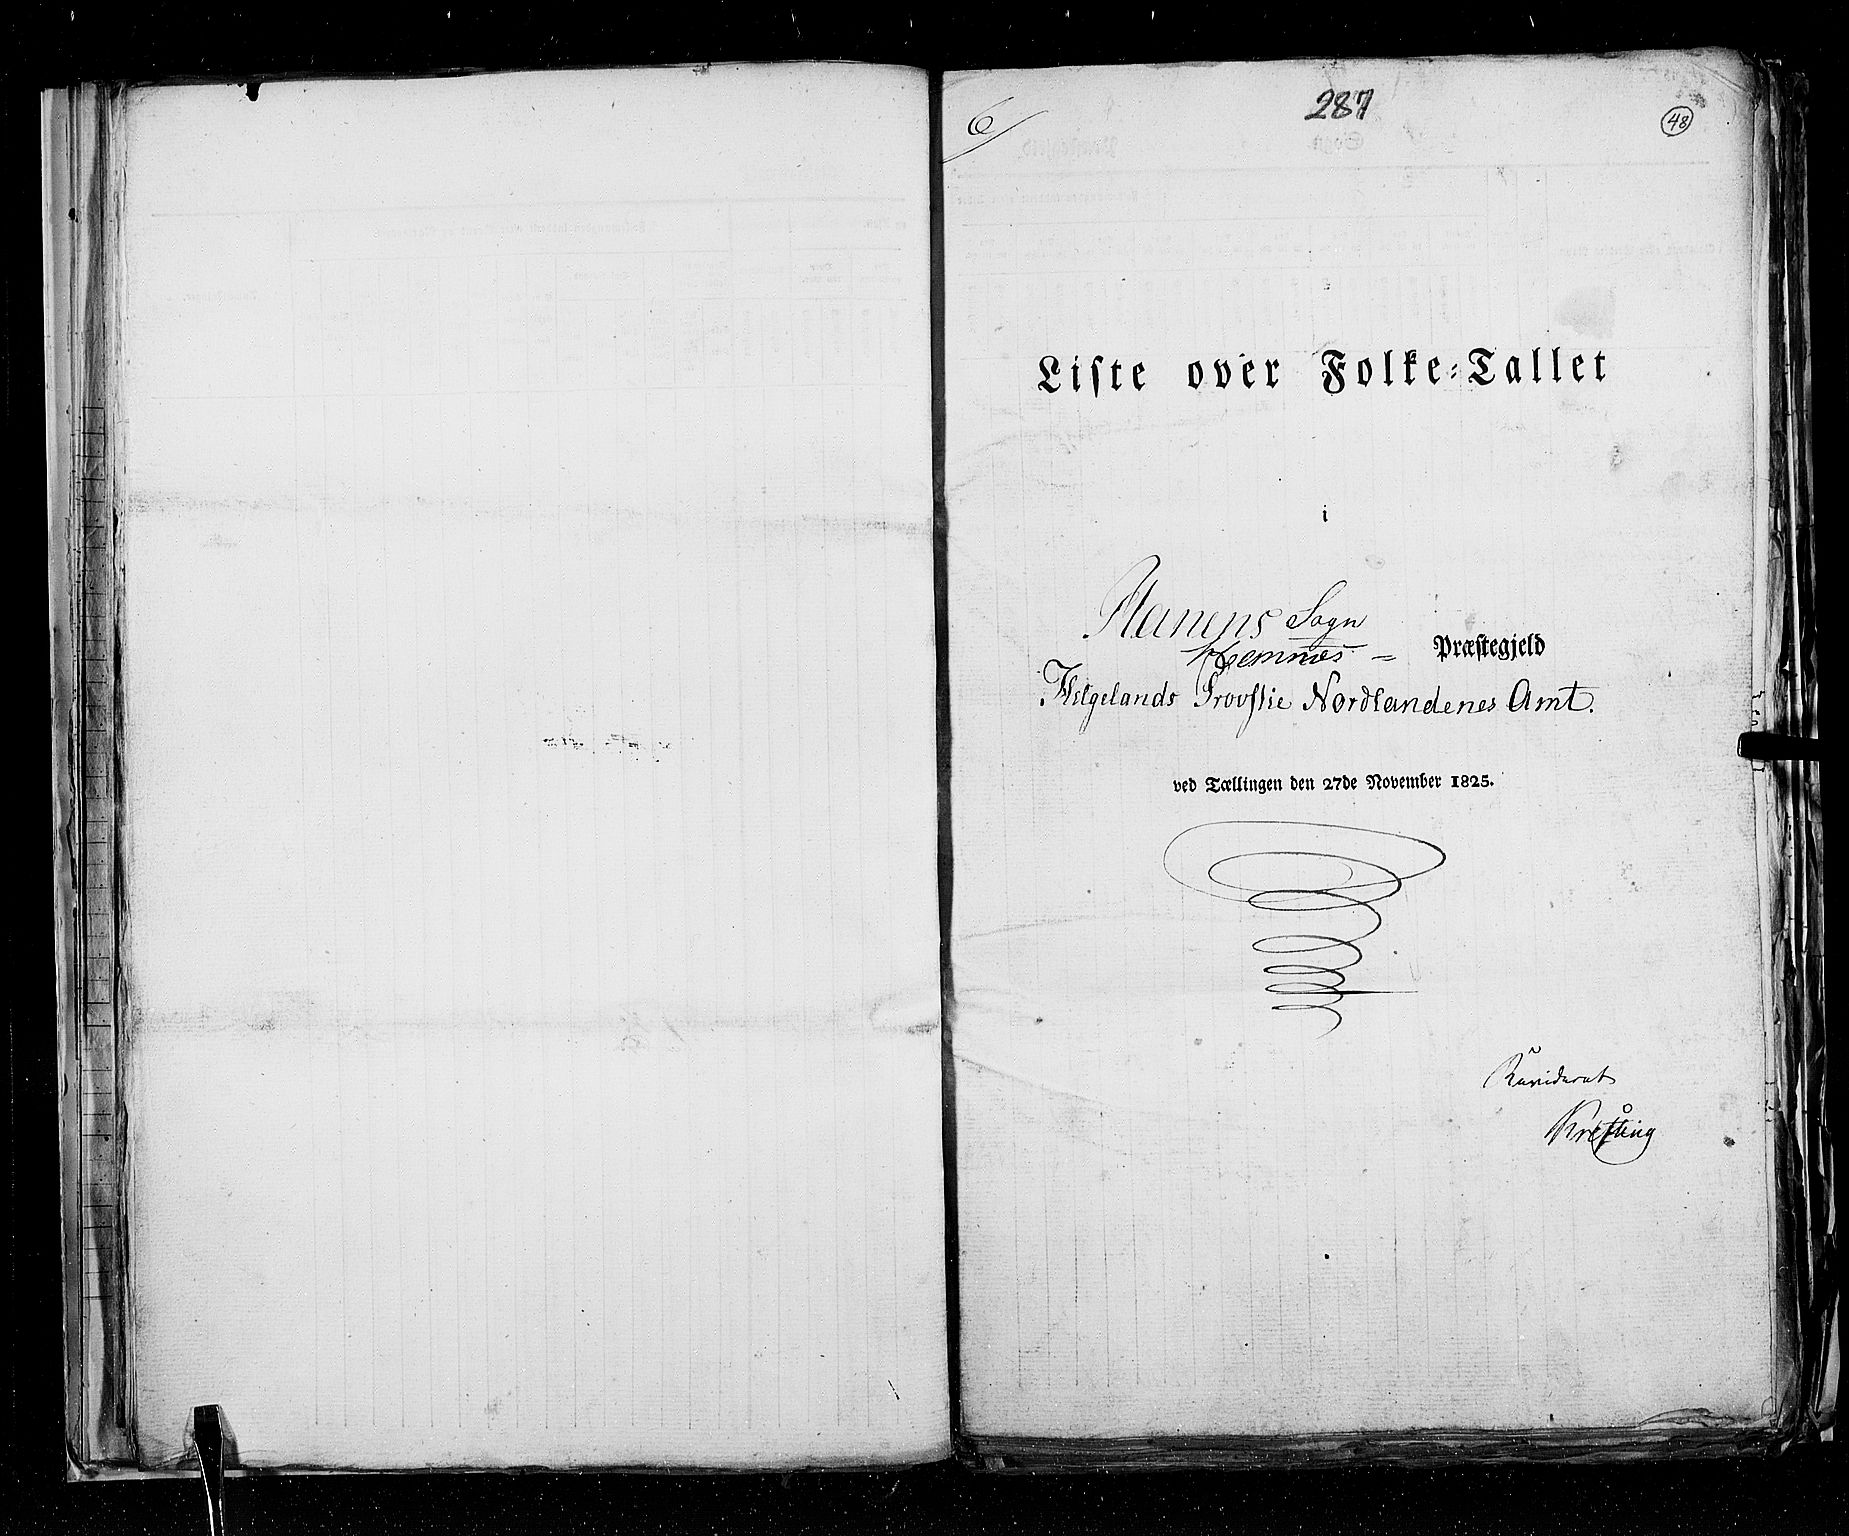 6
287
48
Liste over Folke-Tallet
i
Ranens Sogn
Hemnæs = Præstegjeld
Helgelands Provstie Nordlandenes Amt.
ved Tællingen den 27de November 1825.
Revideret
Krefting